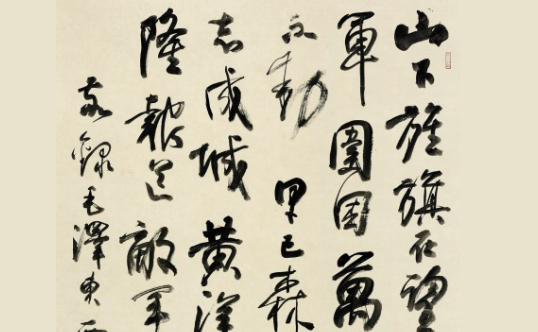 山下旌旗在望
軍圍困萬
不動早已森
志成城黄洋
隆報道敵軍
敬錄毛澤東